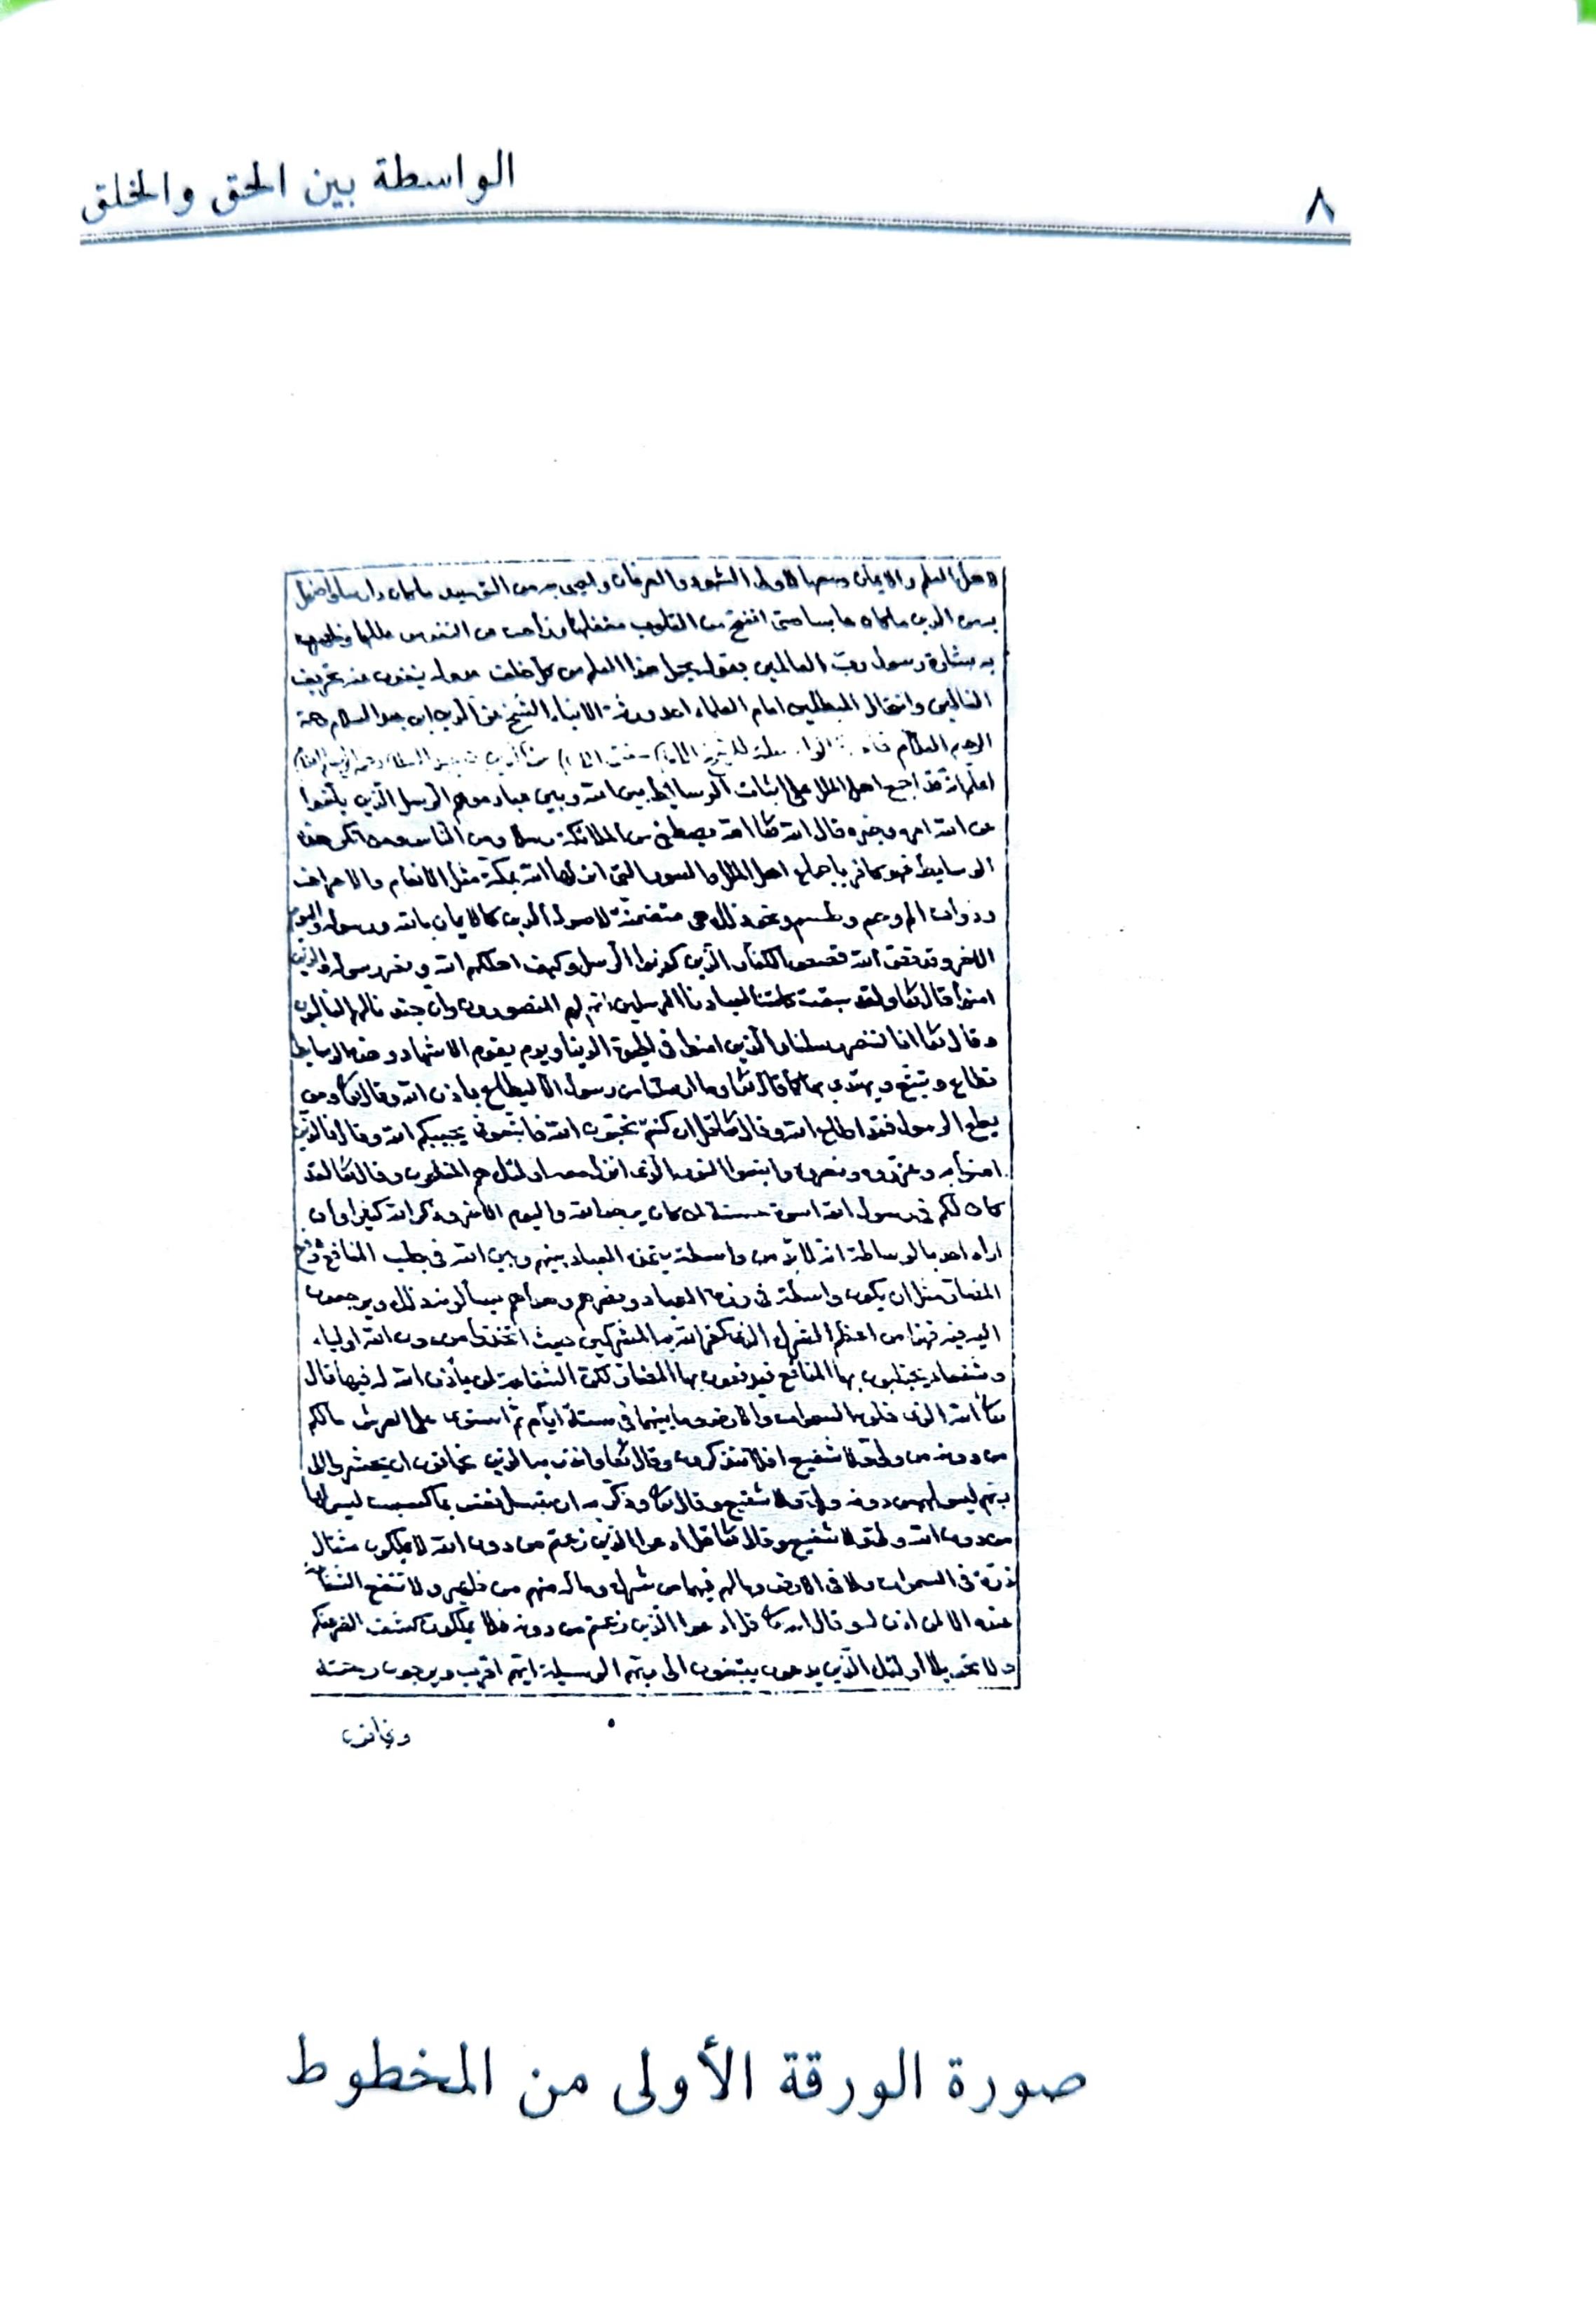 ٨
الواسطة بين الحق والخلق
لاهل العلم والايمان
به بشارة رسول رب العالمين بقوله يحمل هذا العلم من كل خلف عدوله ينفون عنه تحريف
الغالين وانتحال المبطلين امام العلماء
اعلم انه قد اجمع اهل الملل على اثبات الوسايط بين الله وبين عباده وهم الرسل الذين بلغوا
عن الله امره وخبره قال الله تعا الله يصطفي من الملائكة رسلا ومن الناس ومن انكر هذه
الوسايط فهو كافر باجماع اهل الملل والسور التي انزلها الله بمكة مثل الانعام والاعراف
وذوات الر وحم وطسم ونحو ذلك هي متضمنة لاصول الدين كالايمان بالله ورسوله واليوم
الاخر وقد قص الله قصص الكفار الذين كذبوا الرسل وكيف اهلكهم الله ونصر رسوله والذين
امنوا قال تعا ولقد سبقت كلمتنا لعبادنا المرسلين انهم لهم المنصورون وان جندنا لهم الغالبون
وقال تعا انا لننصر رسلنا والذين امنوا في الحيوة الدنيا ويوم يقوم الاشهاد وهذه الوسايط
تطاع وتتبع ويهتدي بها كما قال تعا وما ارسلنا من رسول الا ليطاع باذن الله وقال تعا ومن
يطع الرسول فقد اطاع الله وقال تعا قل ان كنتم تحبون الله فاتبعوني يحببكم الله وقال فالذين
امنوا به وعزروه ونصروه واتبعوا النور الذي انزل معه اولئك هم المفلحون وقال تعا لقد
كان لكم في رسول الله اسوة حسنة لمن كان يرجو الله واليوم الاخر وذكر الله كثيرا وان
اراد احد بالوساطة انه لا بد من واسطة يتخذه العباد بينهم وبين الله في جلب المنافع ودفع
المضار مثل ان يكون واسطة في رزق العباد ونصرهم وهداهم يسألونه ذلك ويرجعون
اليه فيه فهذا من اعظم الشرك الذي كفر الله به المشركين حيث اتخذوا من دون الله اولياء
وشفعاء يجتلبون بها المنافع ويدفعون بها المضار لكن الشفاعة لمن يأذن الله له فيها قال
تعا الله الذي خلق السموات والارض وما بينهما في ستة ايام ثم استوى على العرش مالكم
من دونه من ولي ولا شفيع افلا تتذكرون وقال تعا وانذر به الذين يخافون ان يحشروا الى
ربهم ليس لهم من دونه ولي ولا شفيع وقال تعا وذكر به ان تبسل نفس بما كسبت ليس لها
من دون الله ولي ولا شفيع وقال تعا قل ادعوا الذين زعمتم من دون الله لا يملكون مثقال
ذرة في السموات ولا في الارض وما لهم فيهما من شرك وما له منهم من ظهير ولا تنفع الشفاعة
عنده الا لمن اذن له وقال الله تعا قل ادعوا الذين زعمتم من دونه فلا يملكون كشف الضر عنكم
ولا تحويلا اولئك الذين يدعون يبتغون الى ربهم الوسيلة ايهم اقرب ويرجون رحمته
ويخافون
صورة الورقة الأولى من المخطوط